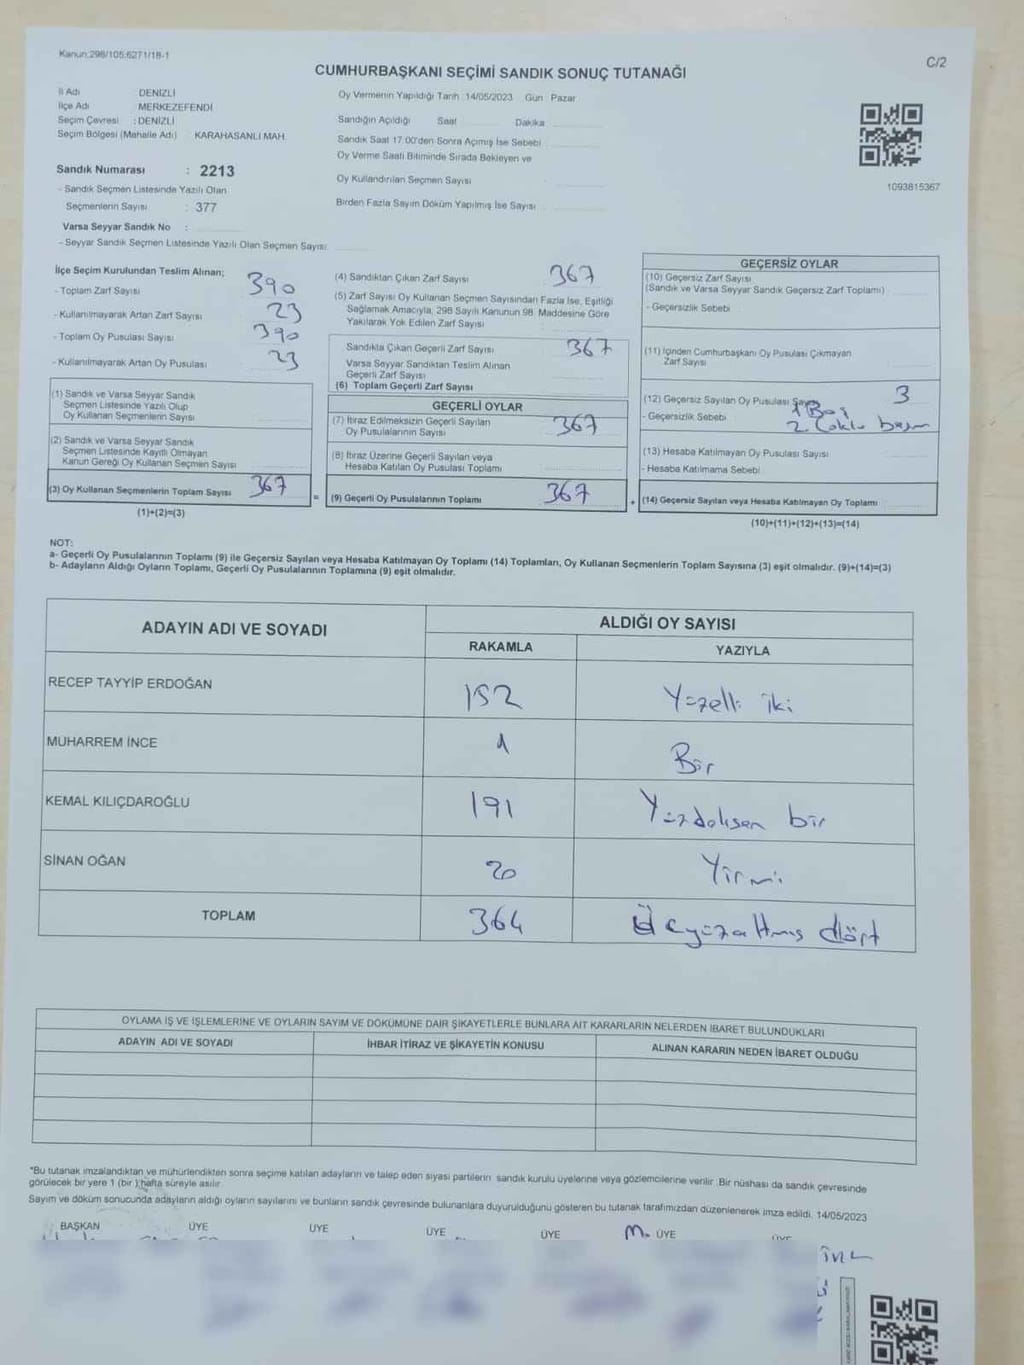 Kanun:298/105,6271/18-1
C/2
CUMHURBAŞKANI SEÇİMİ SANDIK SONUÇ TUTANAĞI
İl Adı DENİZLİ
İlçe Adı MERKEZEFENDİ
Seçim Çevresi : DENİZLİ
Seçim Bölgesi (Mahalle Adı) KARAHASANLI MAH.
Sandık Numarası : 2213
- Sandık Seçmen Listesinde Yazılı Olan
Seçmenlerin Sayısı : 377
Varsa Seyyar Sandık No :
- Seyyar Sandık Seçmen Listesinde Yazılı Olan Seçmen Sayısı
Oy Vermenin Yapıldığı Tarih :14/05/2023 Gün : Pazar
Sandığın Açıldığı Saat Dakika
Sandık Saat 17:00'den Sonra Açımış İse Sebebi
Oy Verme Saati Bitiminde Sırada Bekleyen ve
Oy Kullandırılan Seçmen Sayısı
Birden Fazla Sayım Döküm Yapılmış İse Sayısı
1093815367
İlçe Seçim Kurulundan Teslim Alınan;
- Toplam Zarf Sayısı 390
- Kullanılmayarak Artan Zarf Sayısı 23
- Toplam Oy Pusulası Sayısı 390
- Kullanılmayarak Artan Oy Pusulası 23
(1) Sandık ve Varsa Seyyar Sandık
Seçmen Listesinde Yazılı Olup
Oy Kullanan Seçmenlerin Sayısı
(2) Sandık ve Varsa Seyyar Sandık
Seçmen Listesinde Kayıtlı Olmayan
Kanun Gereği Oy Kullanan Seçmen Sayısı
(3) Oy Kullanan Seçmenlerin Toplam Sayısı 367
(1)+(2)=(3)
(4) Sandıktan Çıkan Zarf Sayısı 367
(5) Zarf Sayısı Oy Kullanan Seçmen Sayısından Fazla İse, Eşitliği
Sağlamak Amacıyla, 298 Sayılı Kanunun 98. Maddesine Göre
Yakılarak Yok Edilen Zarf Sayısı
Sandıkta Çıkan Geçerli Zarf Sayısı 367
Varsa Seyyar Sandıktan Teslim Alınan
Geçerli Zarf Sayısı
(6) Toplam Geçerli Zarf Sayısı
GEÇERLİ OYLAR
(7) İtiraz Edilmeksizin Geçerli Sayılan
Oy Pusulalarının Sayısı 367
(8) İtiraz Üzerine Geçerli Sayılan veya
Hesaba Katılan Oy Pusulası Toplamı
= (9) Geçerli Oy Pusulalarının Toplamı 367
GEÇERSİZ OYLAR
(10) Geçersiz Zarf Sayısı
(Sandık ve Varsa Seyyar Sandık Geçersiz Zarf Toplamı)
- Geçersizlik Sebebi
(11) İçinden Cumhurbaşkanı Oy Pusulası Çıkmayan
Zarf Sayısı
(12) Geçersiz Sayılan Oy Pusulası Sayısı 3
- Geçersizlik Sebebi 1 Boş
2 Çoklu basım
(13) Hesaba Katılmayan Oy Pusulası Sayısı
- Hesaba Katılmama Sebebi
+ (14) Geçersiz Sayılan veya Hesaba Katılmayan Oy Toplamı
(10)+(11)+(12)+(13)=(14)
NOT:
a- Geçerli Oy Pusulalarının Toplamı (9) ile Geçersiz Sayılan veya Hesaba Katılmayan Oy Toplamı (14) Toplamları, Oy Kullanan Seçmenlerin Toplam Sayısına (3) eşit olmalıdır. (9)+(14)=(3)
b- Adayların Aldığı Oyların Toplamı, Geçerli Oy Pusulalarının Toplamına (9) eşit olmalıdır.
ADAYIN ADI VE SOYADI ALDIĞI OY SAYISI
RAKAMLA YAZIYLA
RECEP TAYYİP ERDOĞAN 152 Yüzelli iki
MUHARREM İNCE 1 Bir
KEMAL KILIÇDAROĞLU 191 Yüzdoksan bir
SİNAN OĞAN 20 Yirmi
TOPLAM 364 Üçyüzaltmış dört
OYLAMA İŞ VE İŞLEMLERİNE VE OYLARIN SAYIM VE DÖKÜMÜNE DAİR ŞİKAYETLERLE BUNLARA AİT KARARLARIN NELERDEN İBARET BULUNDUKLARI
ADAYIN ADI VE SOYADI İHBAR İTİRAZ VE ŞİKAYETİN KONUSU ALINAN KARARIN NEDEN İBARET OLDUĞU
*Bu tutanak imzalandıktan ve mühürlendikten sonra seçime katılan adayların ve talep eden siyasi partilerin sandık kurulu üyelerine veya gözlemcilerine verilir. Bir nüshası da sandık çevresinde
görülecek bir yere 1 (bir ) hafta süreyle asılır.
Sayım ve döküm sonucunda adayların aldığı oyların sayılarını ve bunların sandık çevresinde bulunanlara duyurulduğunu gösteren bu tutanak tarafımızdan düzenlenerek imza edildi. 14/05/2023
BAŞKAN ÜYE ÜYE ÜYE ÜYE ÜYE ÜYE